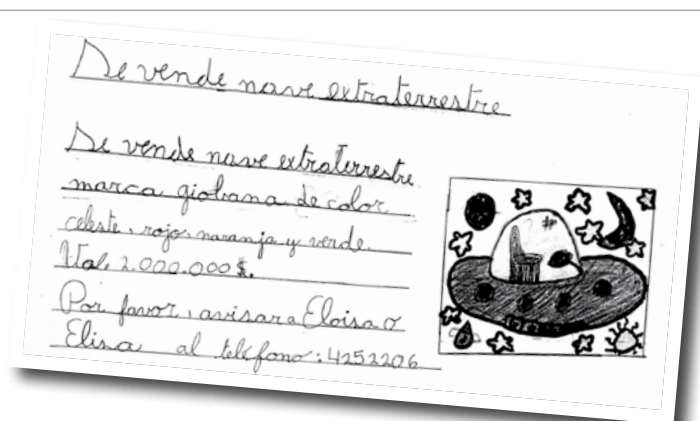 Se vende nave extraterrestre
Se vende nave extraterrestre
marca giobana de color
celeste, rojo, naranja y verde.
Vale 2.000.000 $.
Por favor, avisar a Eloisa o
Elisa al teléfono: 4252206